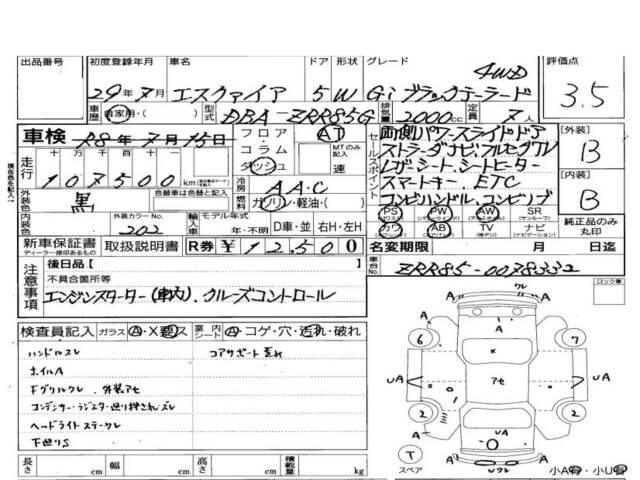 出品番号 初度登録年月 車名 ドア 形状 グレード 評価点
4WD
29年7月 エスクァイア 5 W Gi ブラックテーラード 3.5
車歴 自家用・( ) 型式 DBA ZRR85G 排気量 2000cc 定員 7人
車検 R8年7月15日 フロア AT 両側パワースライドドア [外装]
コラム MTのみ記入 ストラーダナビ フルセグTV B
走行 十万千百十 107500 km ダッシュ 速 レザーシート、シートヒーター
外装色 黒 色替車は色替と記入 冷房 AAC スマートキー、ETC [内装]
燃料 ガソリン・軽油・( ) コンビハンドル、コンビノブ B
内装色 外装カラーNo. 202 輸入車 モデル年式 年・不明 D車・並 右H・左H
セールスポイント
PS PW AW SR (サンルーフ) 純正品のみ丸印
カワ AB TV ナビ
新車保証書 取扱説明書 R券 ¥12,500 名変期限 月 日迄
ディーラー捺印あるもの
車台No. ZRR85-0078332
注意事項 後日品[ ]
不具合箇所等
エンジンスターター(車内)、クルーズコントロール
検査員記入 ガラス A・X要ス 室内シート A・コゲ・穴・汚れ・破れ
ハンドルスレ コアサポート歪み
ホイルA
Fグリルワレ 、外装アセ
コンデンサー・ラジエター廻り押されズレ
ヘッドライトステークレ
下廻りS
長さ cm 幅 cm 高さ cm 積載量 kg
ロック車
ワレ
A A
6 7
A A
UA × UA
アセ
A A
2 2
A UA A
T
スペア
Uワレ
小A有・小U有